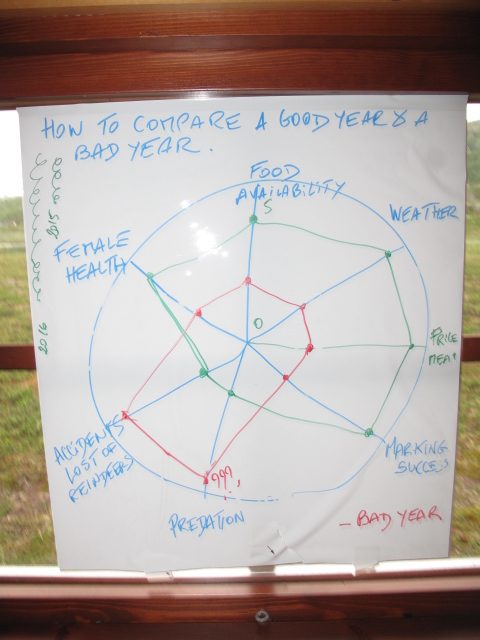 HOW TO COMPARE A GOOD YEAR & A
BAD YEAR.
2015
2016
FOOD
AVAILABILITY
5
WEATHER
FEMALE
HEALTH
0
PRICE
MEAT
MARKING
SUCCESS
ACCIDENTS
LOST OF
REINDEERS
???
PREDATION
- BAD YEAR